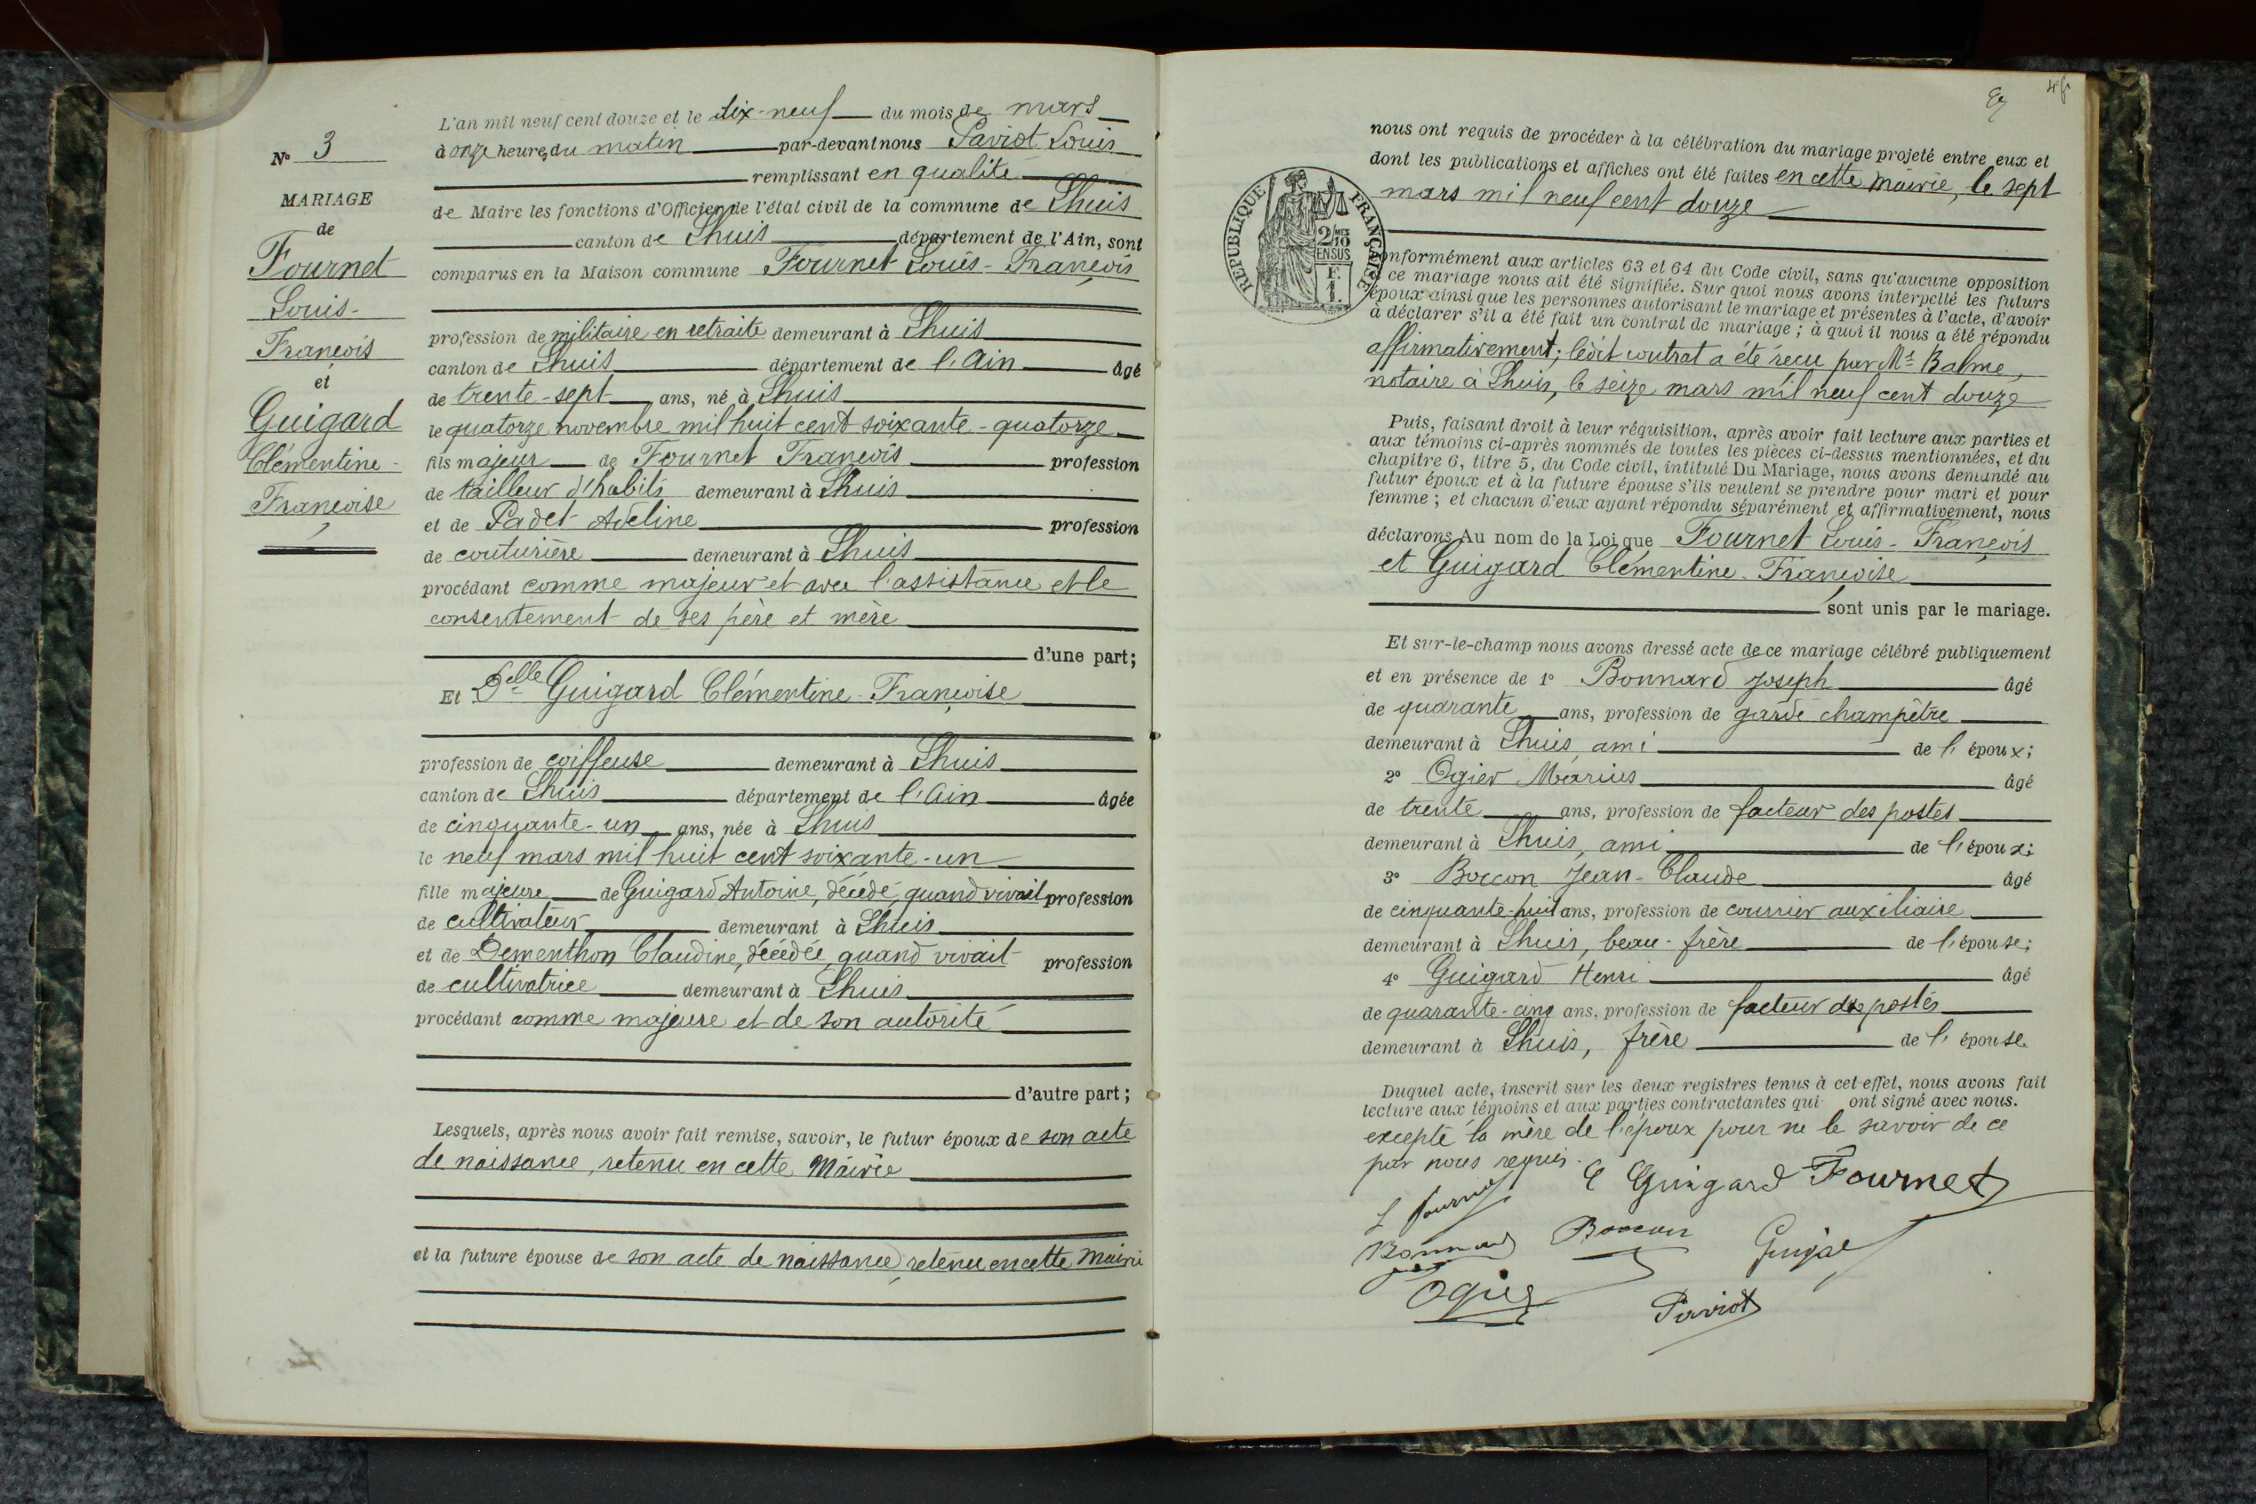 N° 3
MARIAGE
de
Fournet
Louis-
François
et
Guigard
Clémentine-
Françoise
L'an mil neuf cent douze et le dix-neuf du mois de mars
à onze heures du matin par-devant nous Paviot Louis
remplissant en qualité
de Maire les fonctions d'Officier de l'état civil de la commune de Lhuis
canton de Lhuis département de l'Ain, sont
comparus en la Maison commune Fournet Louis-François
profession de militaire en retraite demeurant à Lhuis
canton de Lhuis département de l'Ain âgé
de trente-sept ans, né à Lhuis
le quatorze novembre mil huit cent soixante-quatorze
fils majeur de Fournet François profession
de tailleur d'habits demeurant à Lhuis
et de Padet Adeline profession
de couturière demeurant à Lhuis
procédant comme majeur et avec l'assistance et le
consentement de ses père et mère
d'une part;
Et Delle Guigard Clémentine-Françoise
profession de coiffeuse demeurant à Lhuis
canton de Lhuis département de l'Ain âgée
de cinquante-un ans, née à Lhuis
le neuf mars mil huit cent soixante-un
fille majeure de Guigard Antoine, décédé, quand vivait profession
de cultivateur demeurant à Lhuis
et de Dementhon Claudine, décédée, quand vivait profession
de cultivatrice demeurant à Lhuis
procédant comme majeure et de son autorité
d'autre part;
Lesquels, après nous avoir fait remise, savoir, le futur époux de son acte
de naissance, retenu en cette Mairie
et la future épouse de son acte de naissance, retenu en cette Mairie
nous ont requis de procéder à la célébration du mariage projeté entre eux et
dont les publications et affiches ont été faites en cette mairie, le sept
mars mil neuf cent douze
REPUBLIQUE FRANÇAISE
2/10
EN SUS
F.
1.
conformément aux articles 63 et 64 du Code civil, sans qu'aucune opposition
à ce mariage nous ait été signifiée. Sur quoi nous avons interpellé les futurs
époux ainsi que les personnes autorisant le mariage et présentes à l'acte, d'avoir
à déclarer s'il a été fait un contrat de mariage; à quoi il nous a été répondu
affirmativement; ledit contrat a été reçu par Me Balme,
notaire à Lhuis, le seize mars mil neuf cent douze
Puis, faisant droit à leur réquisition, après avoir fait lecture aux parties et
aux témoins ci-après nommés de toutes les pièces ci-dessus mentionnées, et du
chapitre 6, titre 5, du Code civil, intitulé Du Mariage, nous avons demandé au
futur époux et à la future épouse s'ils veulent se prendre pour mari et pour
femme; et chacun d'eux ayant répondu séparément et affirmativement, nous
déclarons Au nom de la Loi que Fournet Louis-François
et Guigard Clémentine-Françoise
sont unis par le mariage.
Et sur-le-champ nous avons dressé acte de ce mariage célébré publiquement
et en présence de 1° Bonnard Joseph âgé
de quarante ans, profession de garde champêtre
demeurant à Lhuis, ami de l'époux;
2° Ogier Marius âgé
de trente ans, profession de facteur des postes
demeurant à Lhuis, ami de l'époux;
3° Boccon Jean-Claude âgé
de cinquante-huit ans, profession de courrier auxiliaire
demeurant à Lhuis, beau-frère de l'épouse;
4° Guigard Henri âgé
de quarante-cinq ans, profession de facteur des postes
demeurant à Lhuis, frère de l'épouse.
Duquel acte, inscrit sur les deux registres tenus à cet effet, nous avons fait
lecture aux témoins et aux parties contractantes qui ont signé avec nous.
excepté la mère de l'époux pour ne le savoir de ce
par nous requis.
L Fournet C Guigard Fournet
Bonnard Boccon Guigard
Ogier Paviot